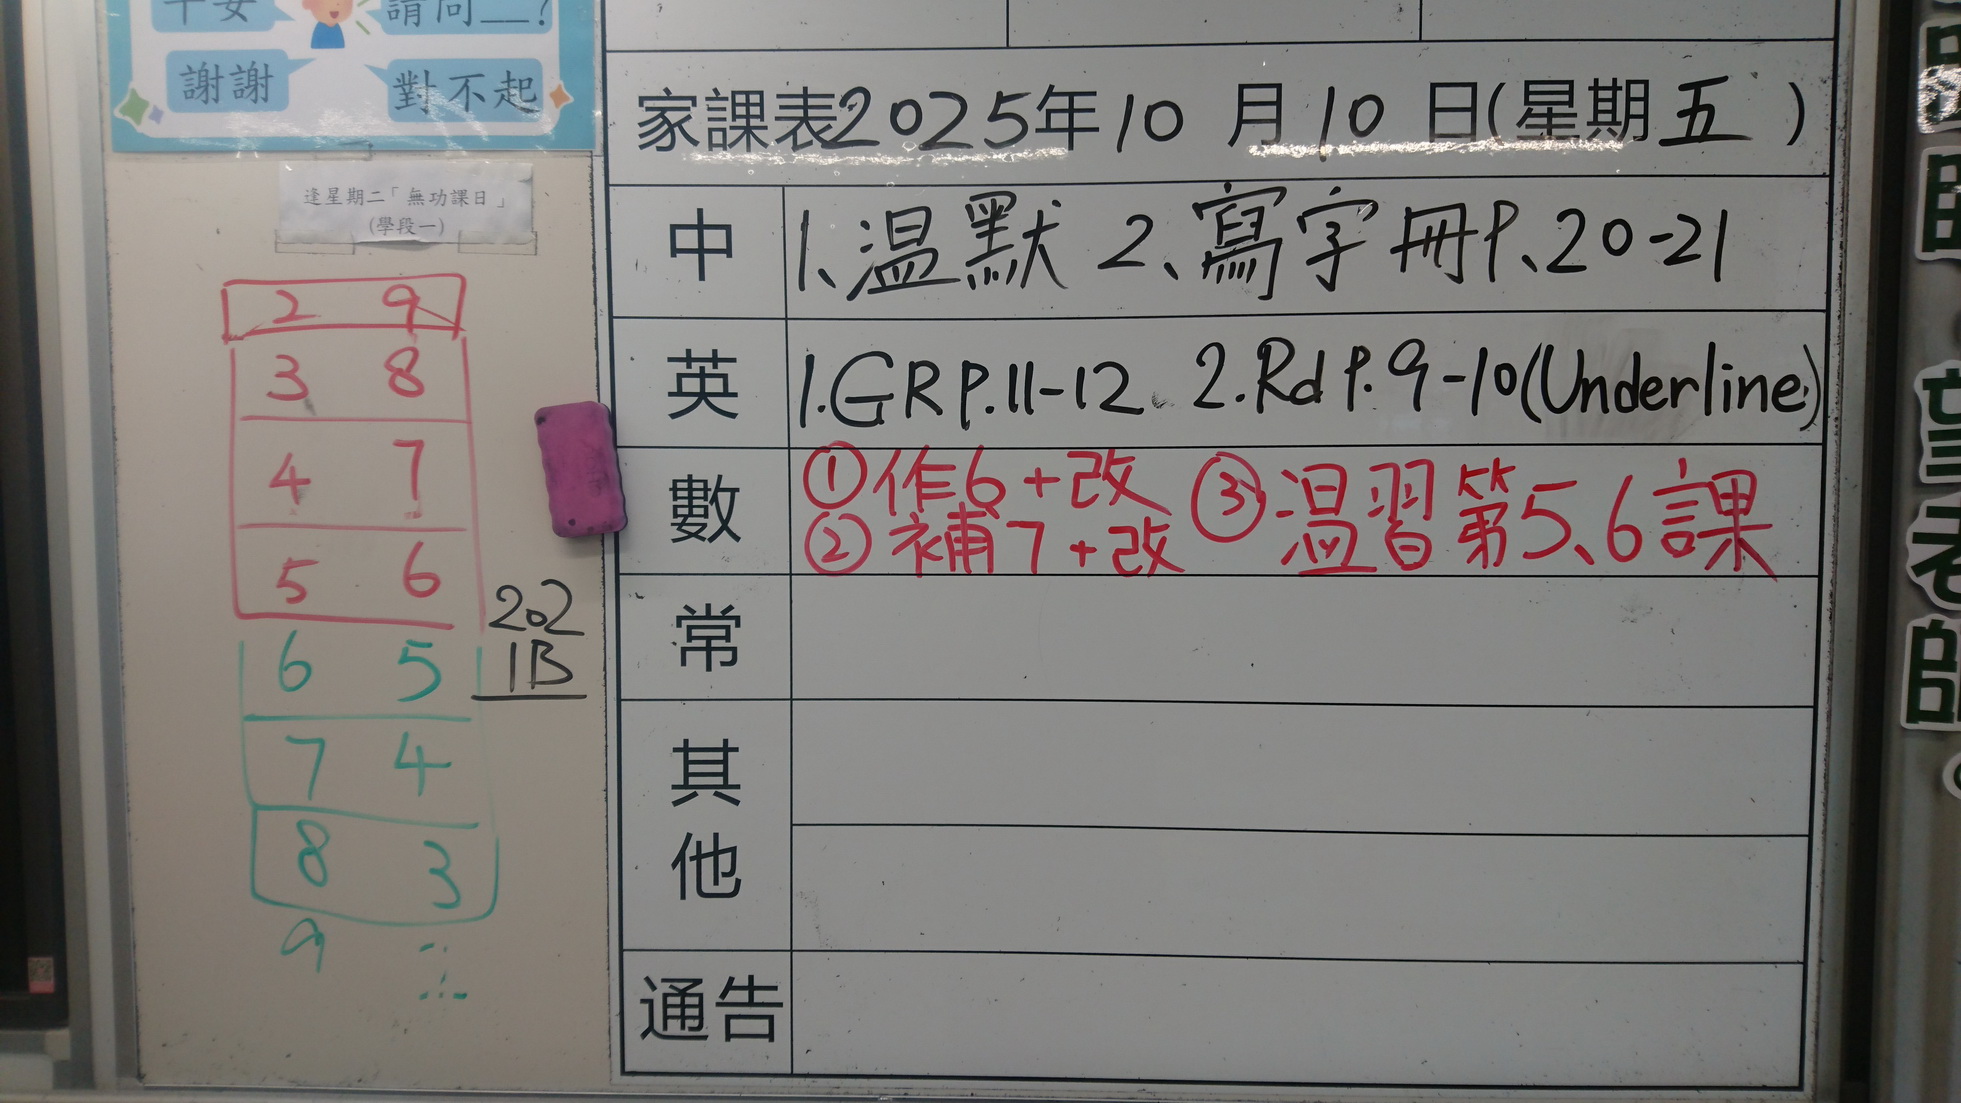 平安
請問__?
謝謝
對不起
逢星期二「無功課日」
(學段一)
2 9
3 8
4 7
5 6
6 5
7 4
8 3
9
202
1B
家課表2025年10月10日(星期五)
中
1、温默 2、寫字冊P、20-21
英
1.GR P.11-12 2.Rd P.9-10(Underline)
數
①作6+改
②補7+改
③温習第5、6課
常
其他
通告
老師。